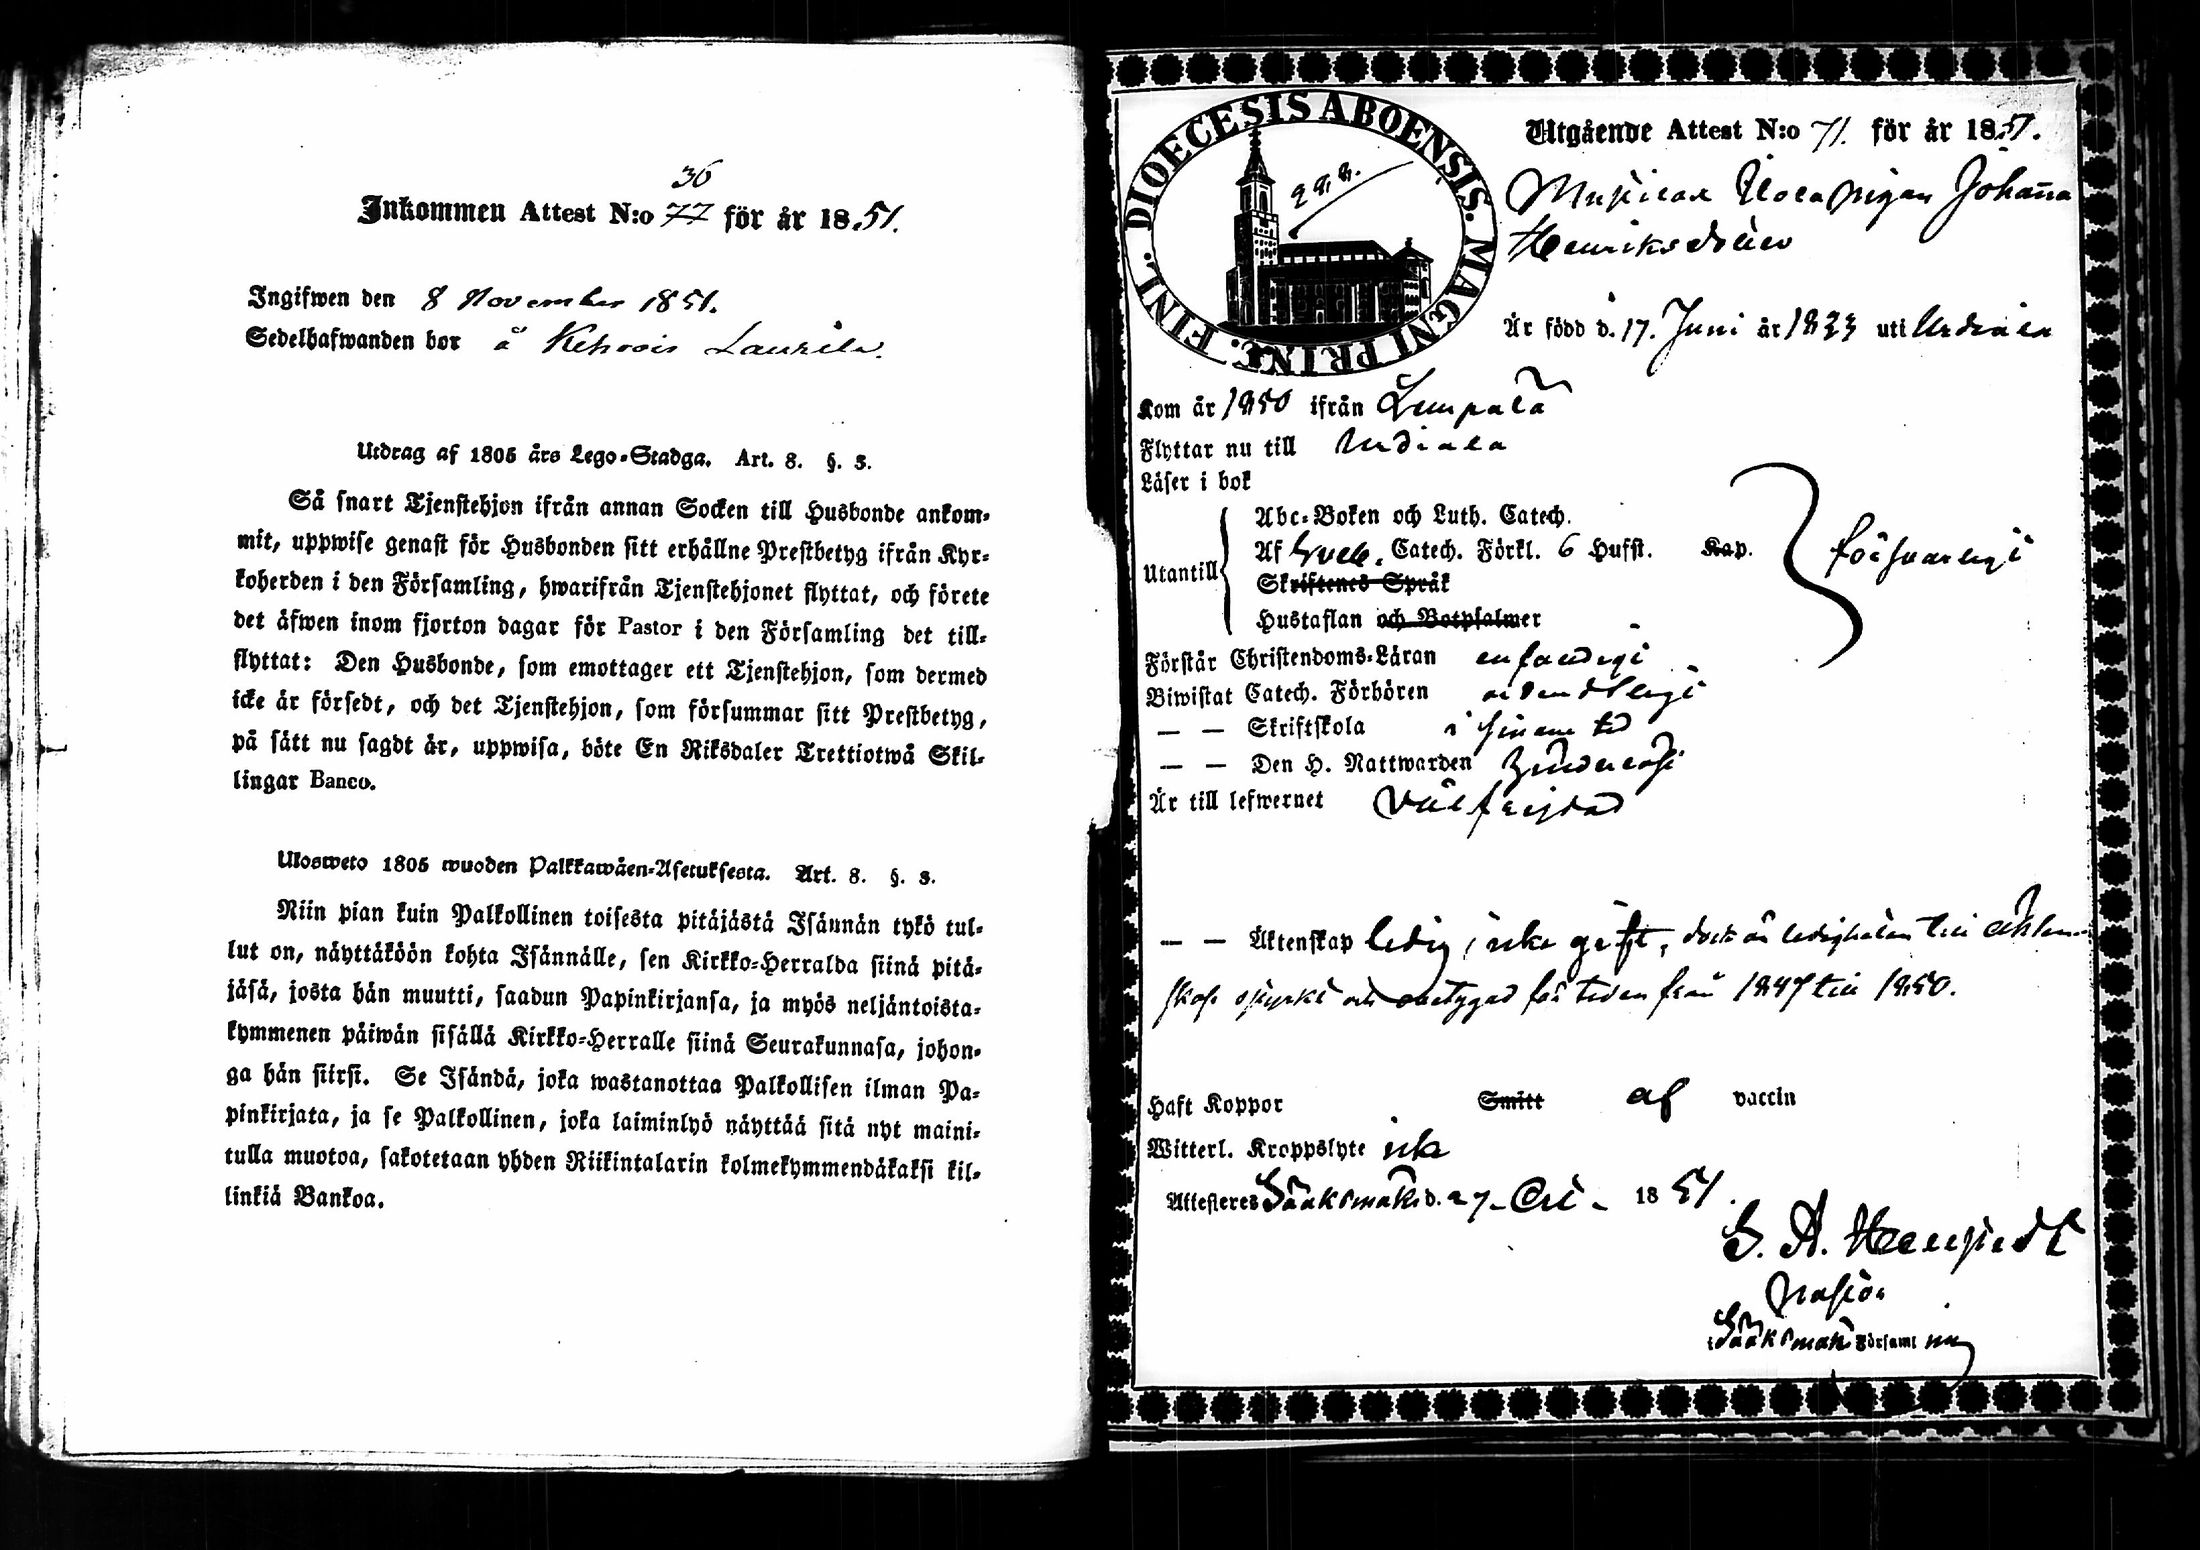 36
Inkommen Attest N:o 77 för år 1851.
Ingifwen den 8 November 1851.
Sedelhafwanden bor å Kehrois Laurila.
Utdrag af 1805 års Lego-Stadga. Art. 8. §. 3.
Så snart Tjenstehjon ifrån annan Socken till Husbonde ankom-
mit, uppwise genast för Husbonden sitt erhållne Prestbetyg ifrån Kyr-
koherden i den Församling, hwarifrån Tjenstehjonet flyttat, och förete
det äfwen inom fjorton dagar för Pastor i den Församling det till-
flyttat: Den Husbonde, som emottager ett Tjenstehjon, som dermed
icke är försedt, och det Tjenstehjon, som försummar sitt Prestbetyg,
på sätt nu sagdt är, uppwisa, böte En Riksdaler Trettiotwå Skil-
lingar Banco.
Ulosweto 1805 wuoden Palkkawäen-Asetuksesta. Art. 8. §. 3.
Niin pian kuin Palkollinen toisesta pitäjästä Isännän tykö tul-
lut on, näyttäköön kohta Isännälle, sen Kirkko-Herralda siinä pitä-
jäsä, josta hän muutti, saadun Papinkirjansa, ja myös neljäntoista-
kymmenen päiwän sisällä Kirkko-Herralle siinä Seurakunnasa, johon-
ga hän siirsi. Se Isändä, joka wastanottaa Palkollisen ilman Pa-
pinkirjata, ja se Palkollinen, joka laiminlyö näyttää sitä nyt maini-
tulla muotoa, sakotetaan yhden Riikintalarin kolmekymmendäkaksi kil-
linkiä Bankoa.
DIOECESIS ABOENSIS. MAGNI PRINC. FINL.
Utgående Attest N:o 71. för år 1851.
Pigan Johanna
Henriksdotter
Är född d. 17. Juni år 1833 uti Urdiala
Kom år 1850 ifrån Lempälä
Flyttar nu till Urdiala
Läser i bok
Abc-Boken och Luth. Catech.
Utantill Af Sveb. Catech. Förkl. 6 Hufst. Kap. försvarligt
Skriftenes Språk
Hustaflan och Botpsalmer
Förstår Christendoms-Läran enfaldigt
Biwistat Catech. Förhören ordentligt
— — Skriftskola i sinom tid
— — Den H. Nattwarden
Är till lefwernet välfrejdad
— — Äktenskap ledig, icke gift, dock är ledigheten till äkten-
skap ostyrkt och obetygad för tiden från 1847 till 1850.
Haft Koppor Smitt af vaccin
Witterl. Kroppslyte icke
Attesteres Sääksmäki d. 27 Oct. 1851.
Pastor
i Sääksmäki Församling